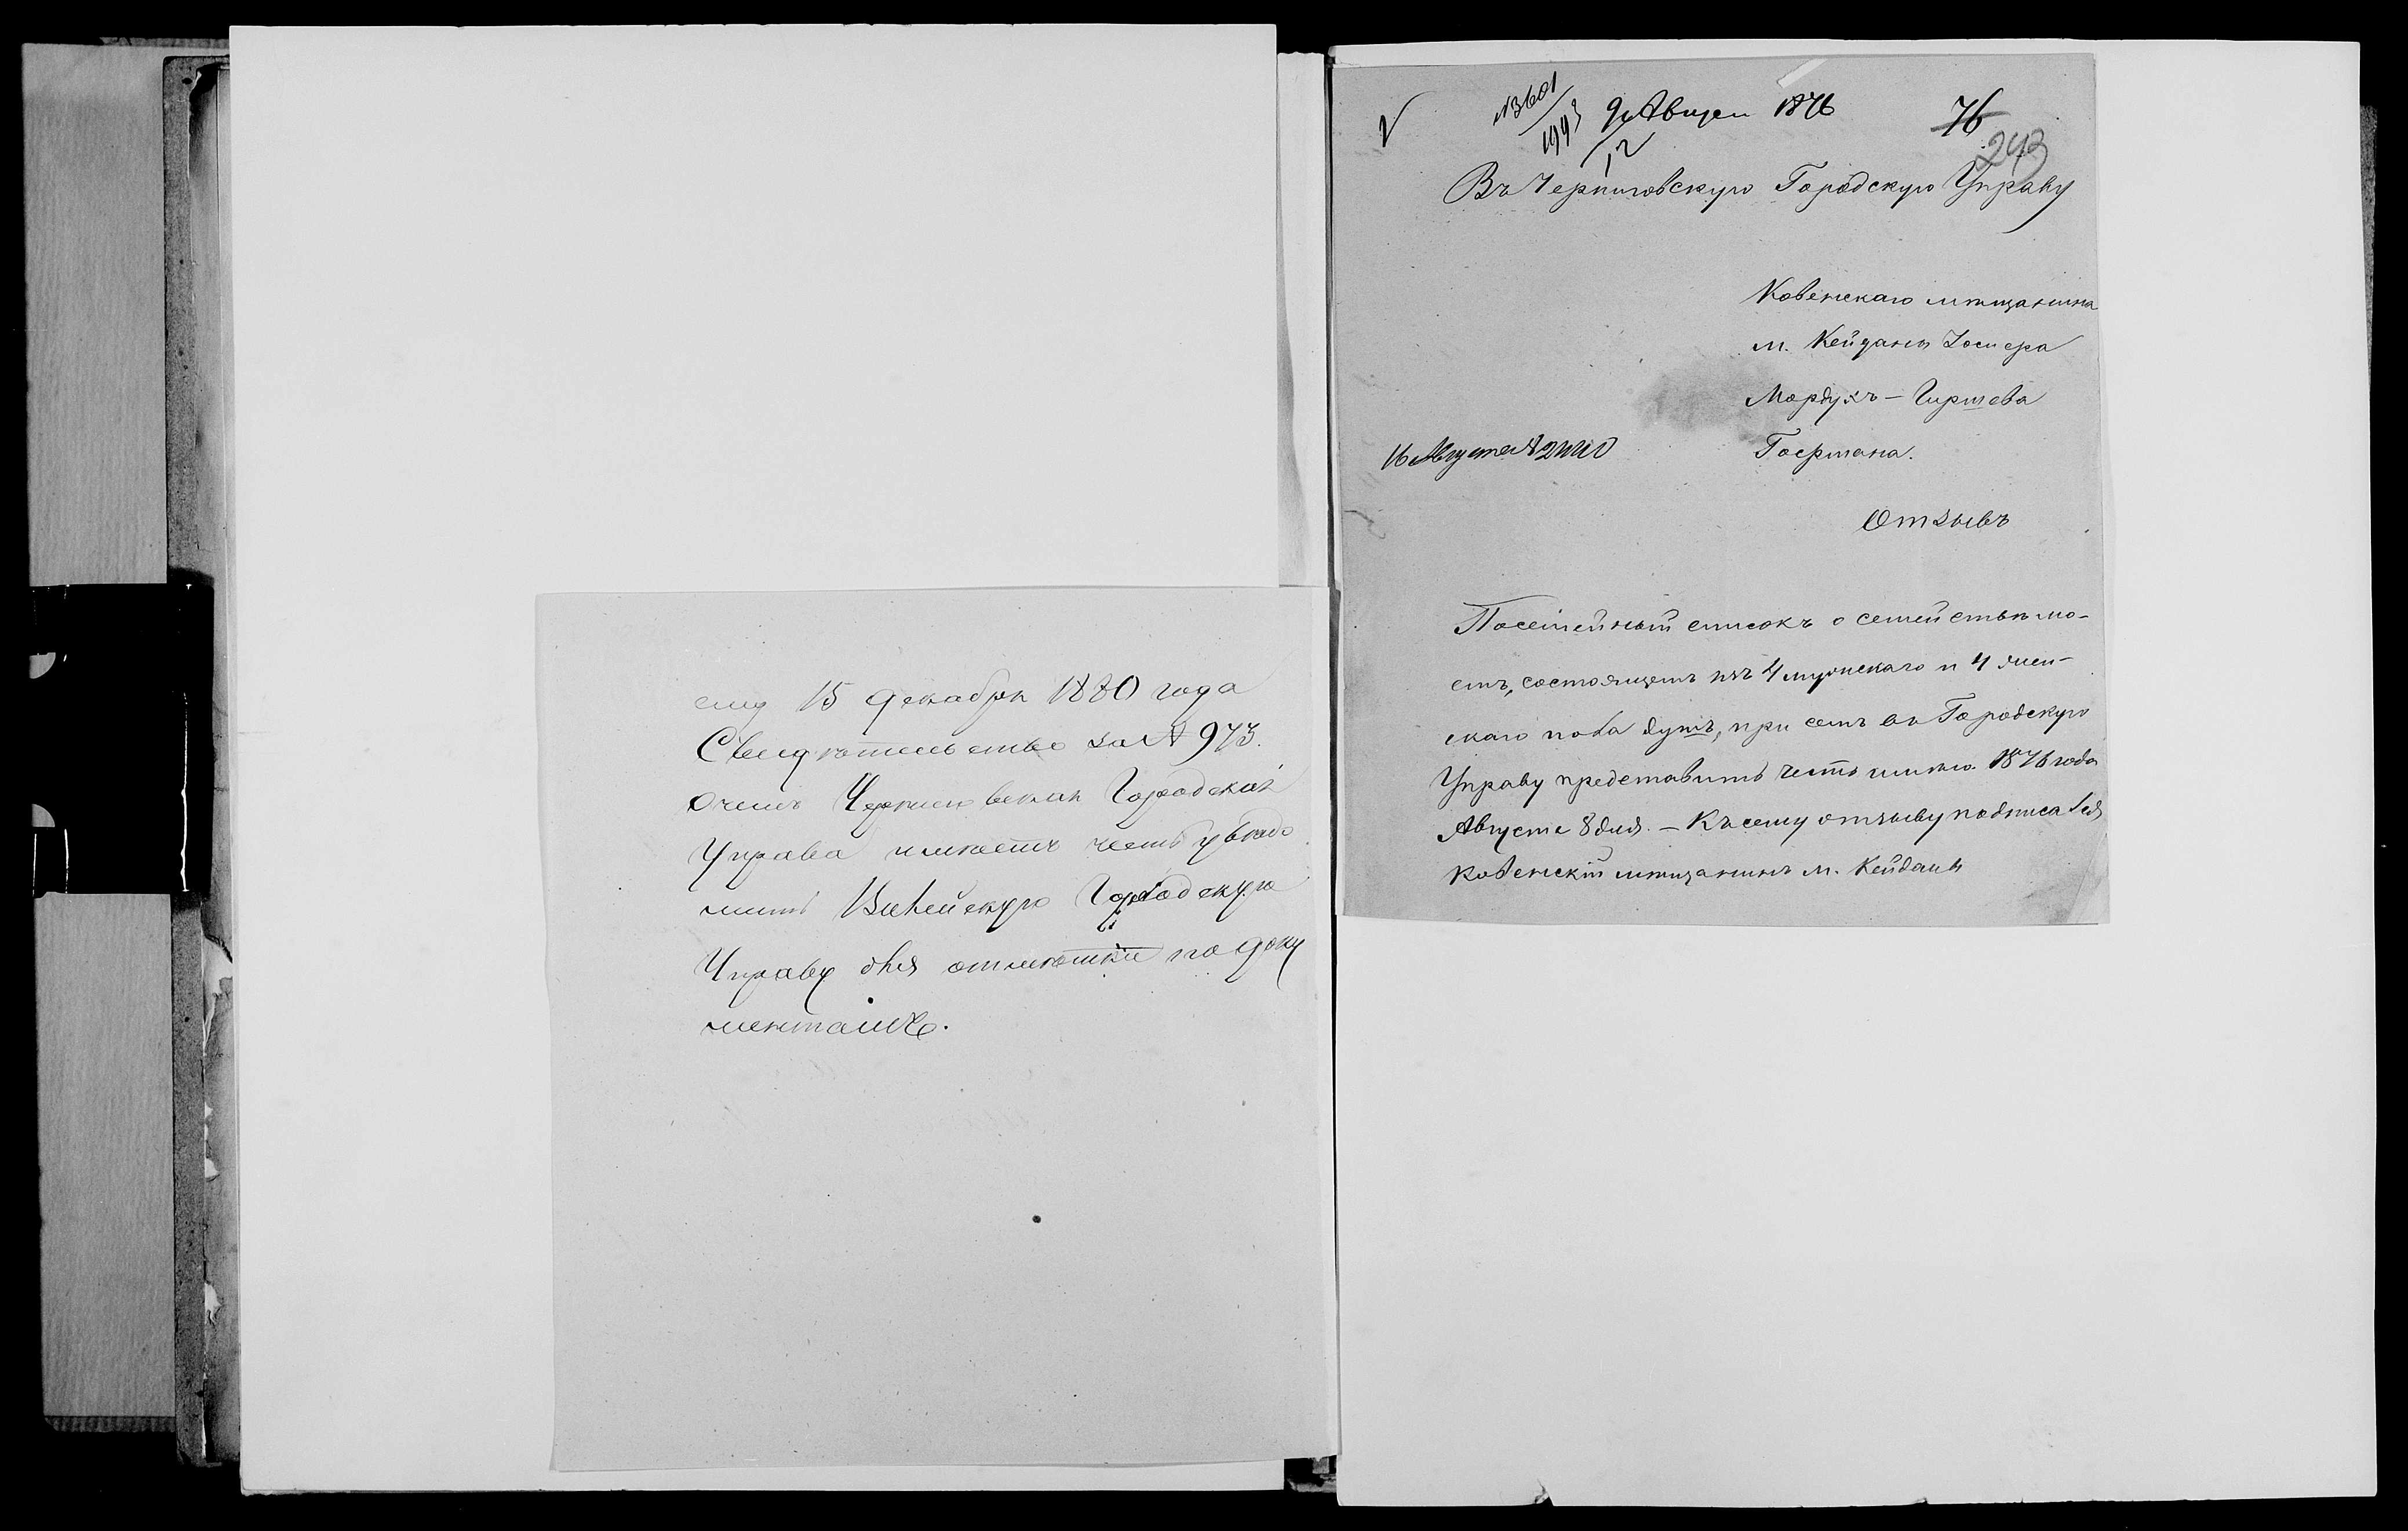 ему 15 декабря 1880 года
Свидѣтельство за № 973.
О чемъ Черниговская Городская
Управа имѣетъ честь увѣдо
мить Вилейскую Городскую
Управу для отмѣтки по доку
ментамъ.
№ 3601
9 Август 1876
76
243
12
Въ Черниговскую Городскую Управу
Ковенскаго мѣщанина
м. Кейданъ
Мордухъ-Гиршева
16 Августа № 2440
Отзывъ
Посемейный списокъ о семействѣ мо-
емъ, состоящемъ изъ 4 мужскаго и 4 жен-
скаго пола душъ, при семъ въ Городскую
Управу представить честь имѣю. 1876 года
Августа 8 дня. — Къ сему отзыву подписался
Ковенскій мѣщанинъ м. Кейданъ